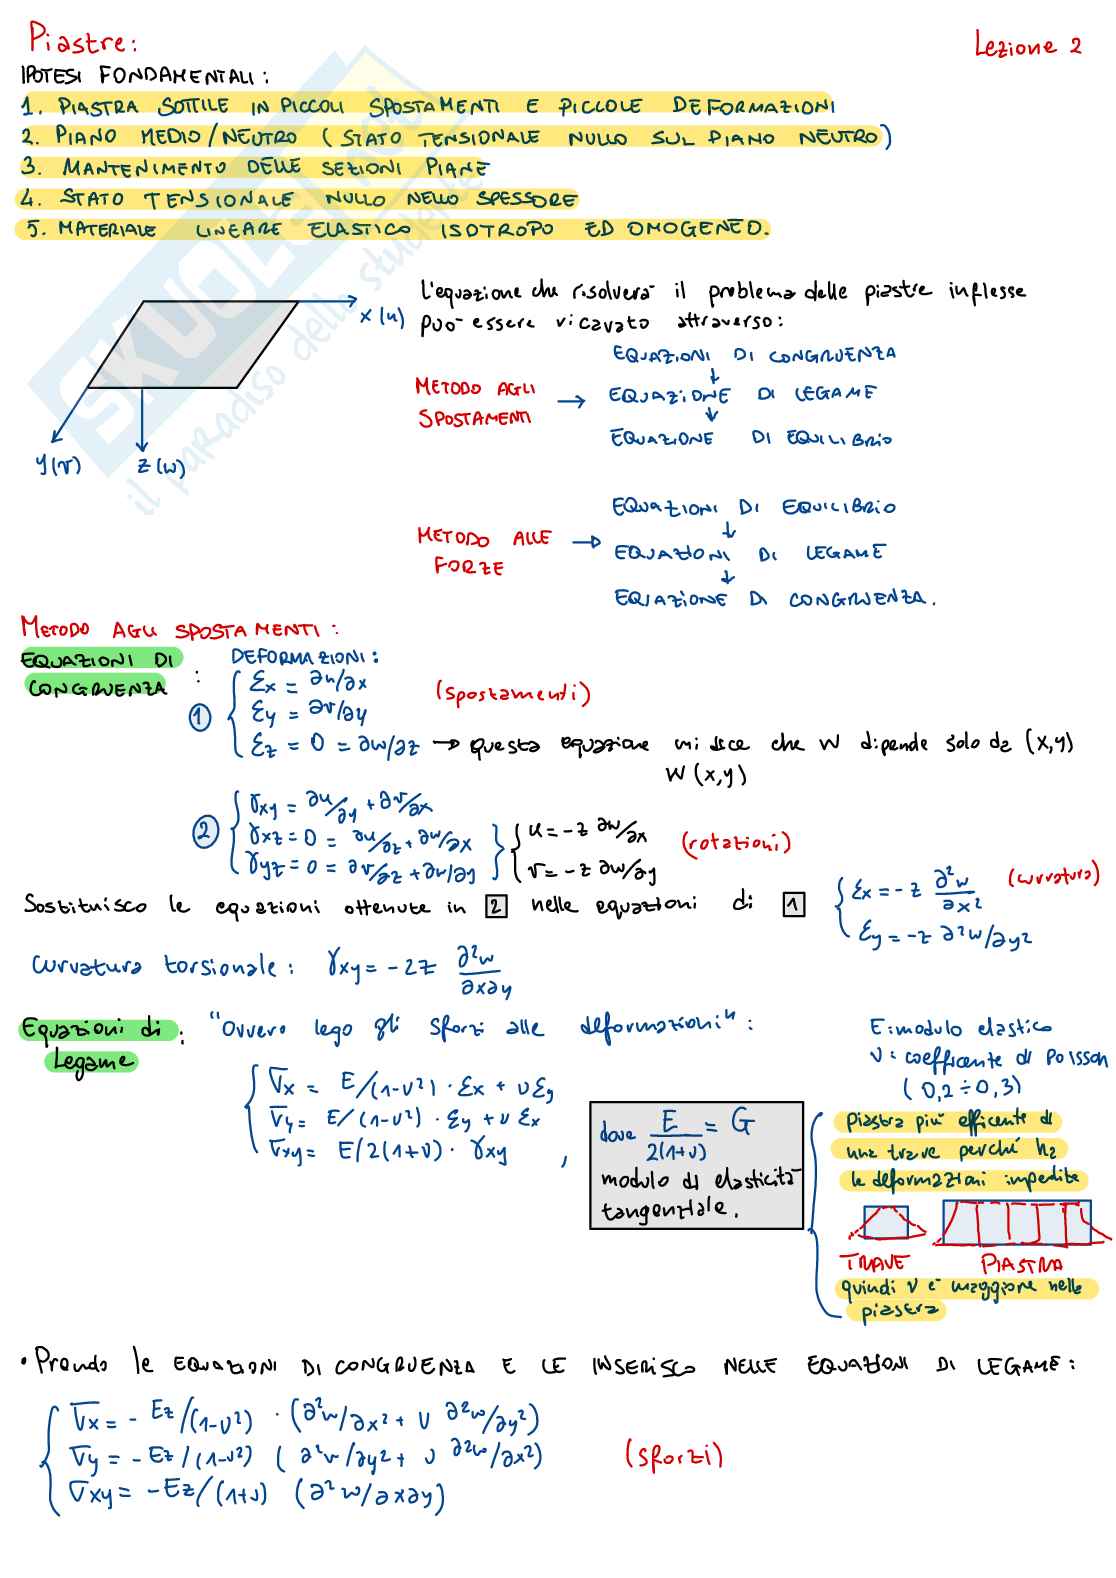 Piastre:
Lezione 2
IPOTESI FONDAMENTALI:
1. PIASTRA SOTTILE IN PICCOLI SPOSTAMENTI E PICCOLE DEFORMAZIONI
2. PIANO MEDIO/NEUTRO (STATO TENSIONALE NULLO SUL PIANO NEUTRO)
3. MANTENIMENTO DELLE SEZIONI PIANE
4. STATO TENSIONALE NULLO NELLO SPESSORE
5. MATERIALE LINEARE ELASTICO ISOTROPO ED OMOGENEO.
SKUOLA.net
il paradiso dello studente
x (u)
y (v)
z (w)
L'equazione che risolverà il problema delle piastre inflesse
può essere ricavato attraverso:
METODO AGLI
SPOSTAMENTI
→
EQUAZIONI DI CONGRUENZA
↓
EQUAZIONE DI LEGAME
↓
EQUAZIONE DI EQUILIBRIO
METODO ALLE
FORZE
→
EQUAZIONI DI EQUILIBRIO
↓
EQUAZIONI DI LEGAME
↓
EQUAZIONE DI CONGRUENZA.
METODO AGLI SPOSTAMENTI:
EQUAZIONI DI
CONGRUENZA :
DEFORMAZIONI:
1
εx = ∂u/∂x
(spostamenti)
εy = ∂v/∂y
εz = 0 = ∂w/∂z → questa equazione mi dice che w dipende solo da (x,y)
W(x,y)
2
γxy = ∂u/∂y + ∂v/∂x
γxz = 0 = ∂u/∂z + ∂w/∂x
γyz = 0 = ∂v/∂z + ∂w/∂y
u = -z ∂w/∂x
v = -z ∂w/∂y
(rotazioni)
Sostituisco le equazioni ottenute in 2 nelle equazioni di 1
εx = -z ∂²w/∂x²
(curvatura)
εy = -z ∂²w/∂y²
Curvatura torsionale: γxy = -2z ∂²w/∂x∂y
Equazioni di
Legame :
"Ovvero lego gli sforzi alle deformazioni":
E: modulo elastico
ν: coefficente di Poisson
(0,2÷0,3)
σx = E/(1-ν²) · εx + νεy
σy = E/(1-ν²) · εy + ν εx
σxy = E/2(1+ν) · γxy ,
dove E/2(1+ν) = G
modulo di elasticità
tangenziale.
piastra più efficente di
una trave perché ha
le deformazioni impedite
TRAVE
PIASTRA
quindi ν è maggiore nella
piastra
• Prendo le EQUAZIONI DI CONGRUENZA E LE INSERISCO NELLE EQUAZIONI DI LEGAME:
σx = - Ez/(1-ν²) · (∂²w/∂x² + ν ∂²w/∂y²)
σy = - Ez/(1-ν²) (∂²v/∂y² + ν ∂²w/∂x²)
σxy = -Ez/(1+ν) (∂²w/∂x∂y)
(Sforzi)